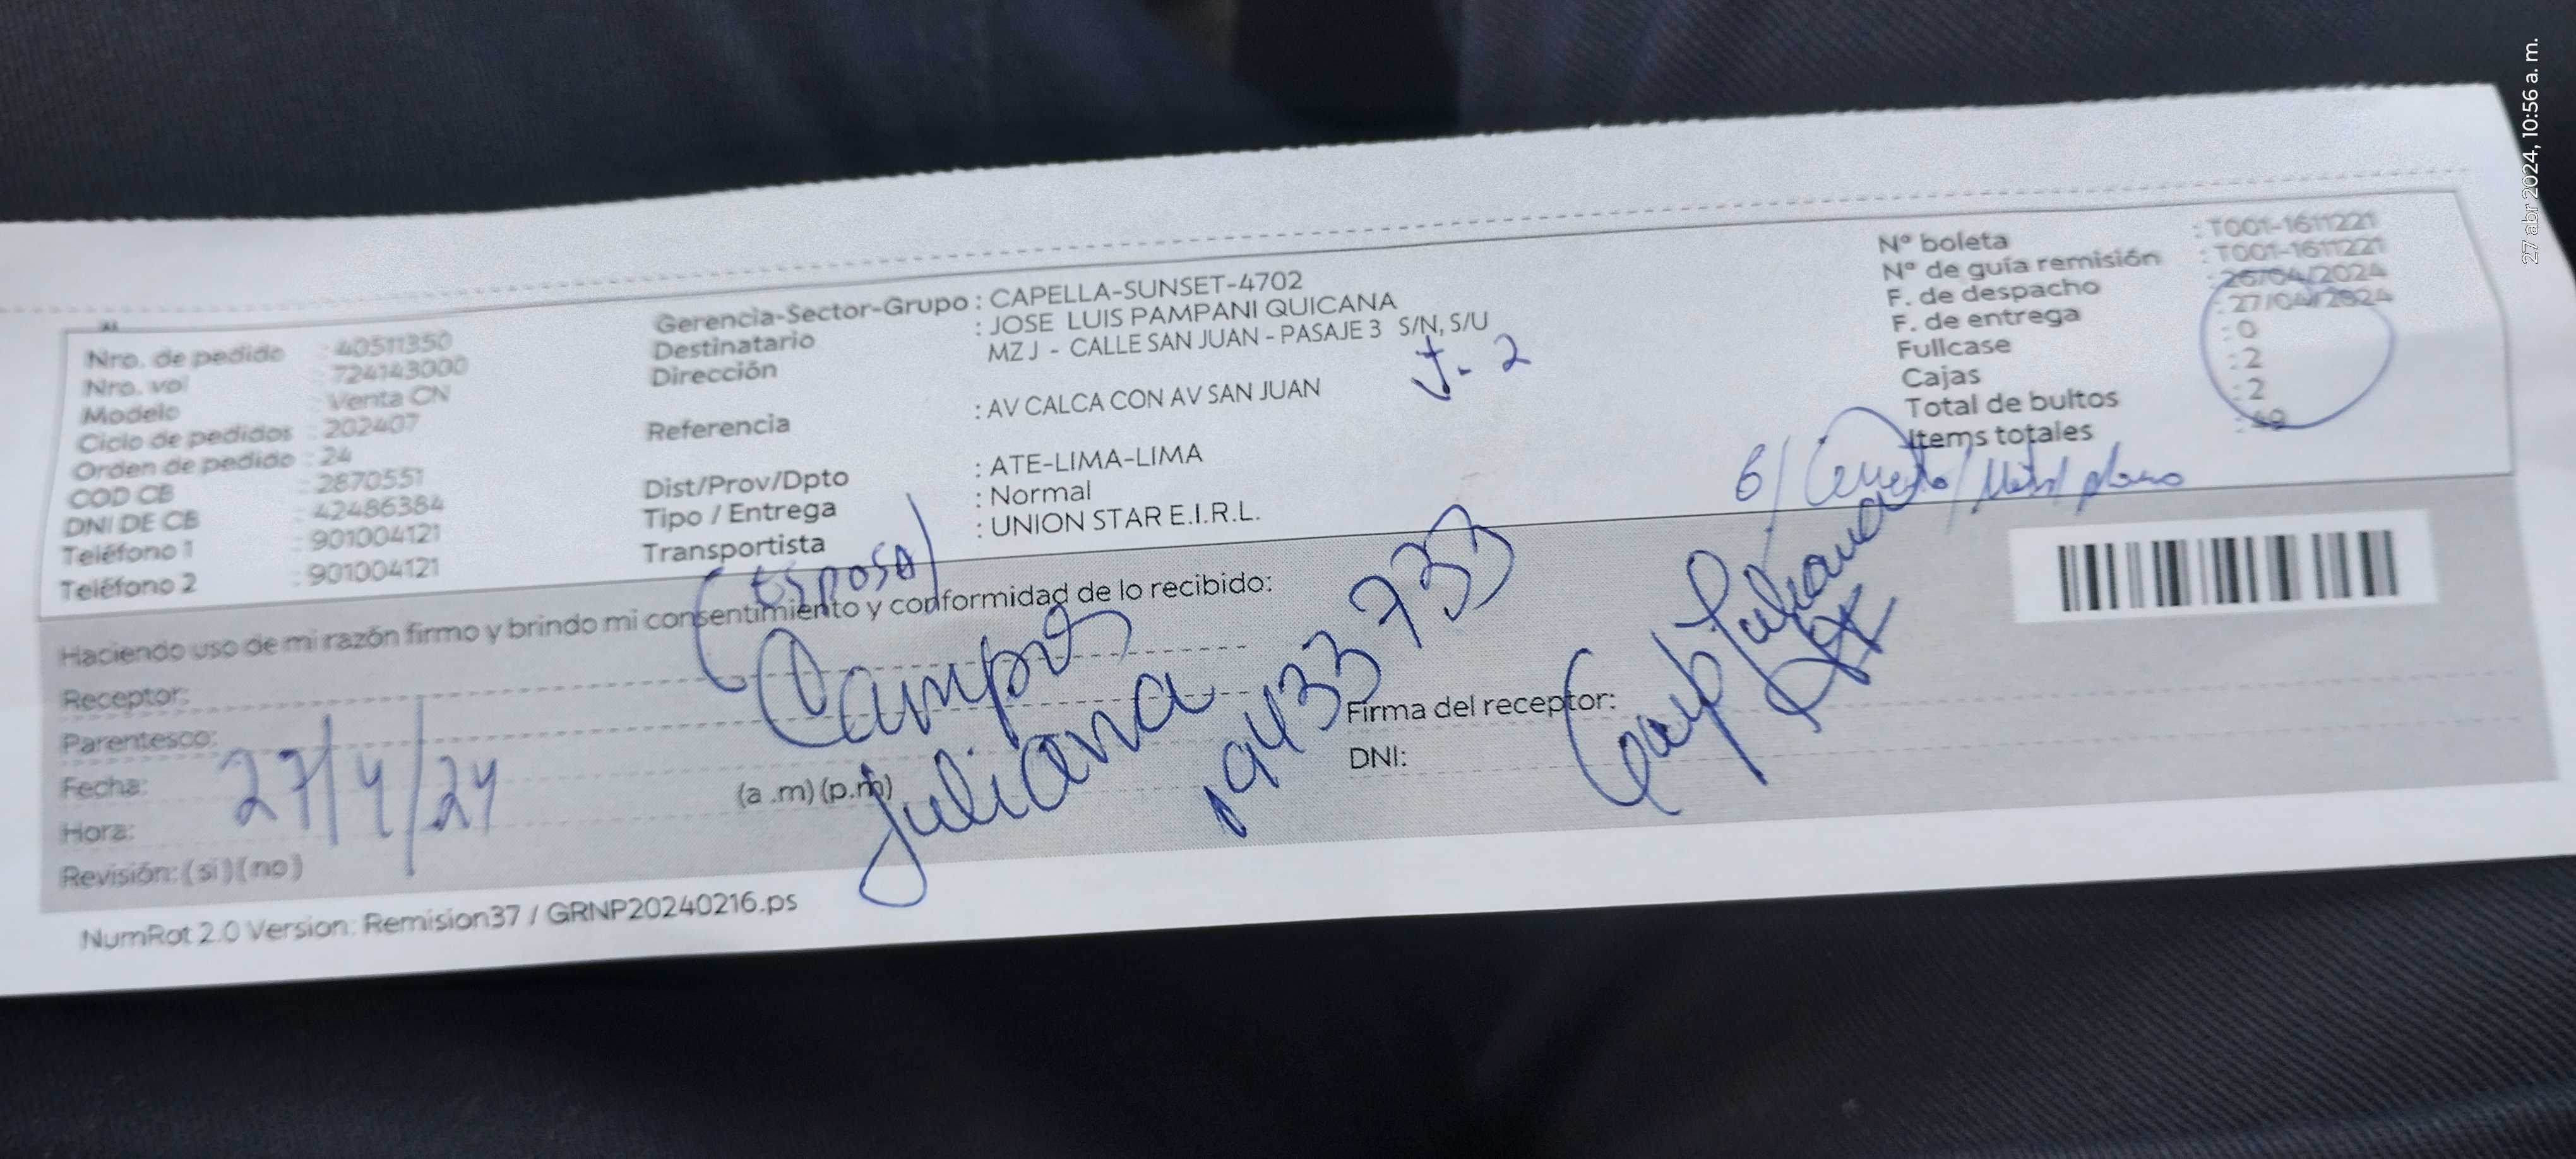 27 abr 2024, 10:56 a. m.
Nro. de pedido : 40511350
Nro. vol : 724143000
Modelo : Venta CN
Ciclo de pedidos : 202407
Orden de pedido : 24
COD CB : 2870551
DNI DE CB : 42486384
Teléfono 1 : 901004121
Teléfono 2 : 901004121
Gerencia-Sector-Grupo : CAPELLA-SUNSET-4702
Destinatario : JOSE LUIS PAMPANI QUICANA
Dirección MZ J - CALLE SAN JUAN - PASAJE 3 S/N, S/U
J-2
Referencia : AV CALCA CON AV SAN JUAN
Dist/Prov/Dpto : ATE-LIMA-LIMA
Tipo / Entrega : Normal
Transportista : UNION STAR E.I.R.L.
Nº boleta : T001-1611221
Nº de guía remisión : T001-1611221
F. de despacho : 26/04/2024
F. de entrega : 27/04/2024
Fullcase : 0
Cajas : 2
Total de bultos : 2
Items totales :
(Esposa)
Haciendo uso de mi razón firmo y brindo mi consentimiento y conformidad de lo recibido:
Receptor: Campos
Juliana
Parentesco:
Fecha: 27/4/24
Hora: (a .m) (p.m)
Revisión: (si) (no)
Firma del receptor:
DNI:
NumRot 2.0 Version: Remision37 / GRNP20240216.ps